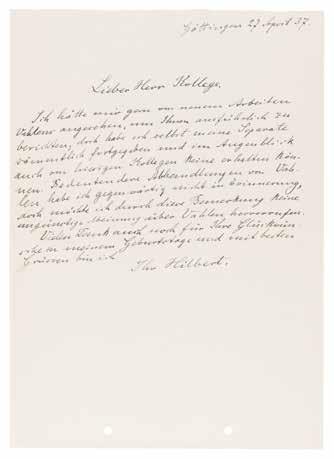 Göttingen 27 April 37.
Lieber Herr Kollege.
Ich hätte mir gern von neuem Arbeiten
Vahlens angesehen, um Ihnen ausführlich zu
berichten, doch habe ich selbst meine Separate
sämmtlich fortgegeben und im Augenblick
auch von hiesigen Kollegen keine erhalten kön-
nen. Bedeutendere Abhandlungen von Vah-
len habe ich gegenwärtig nicht in Erinnerung,
doch möchte ich durch diese Bemerkung keine
ungünstige Meinung über Vahlen hervorrufen.
Vielen Dank auch noch für Ihre Glückwün-
sche zu meinem Geburtstage und mit besten
Grüssen bin ich
Ihr Hilbert.